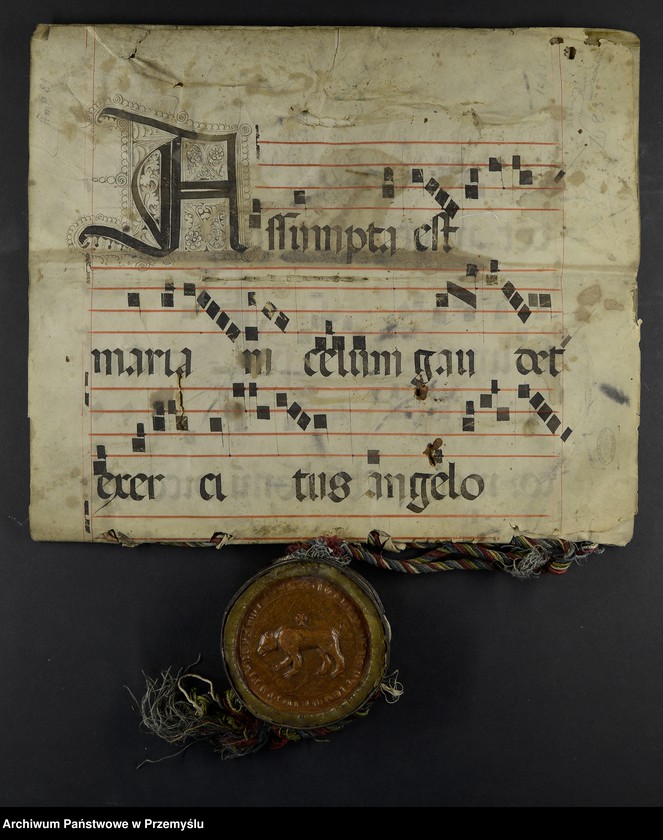 Assumpta est
maria in celum gau det
exer ci tus angelo
Archiwum Państwowe w Przemyślu